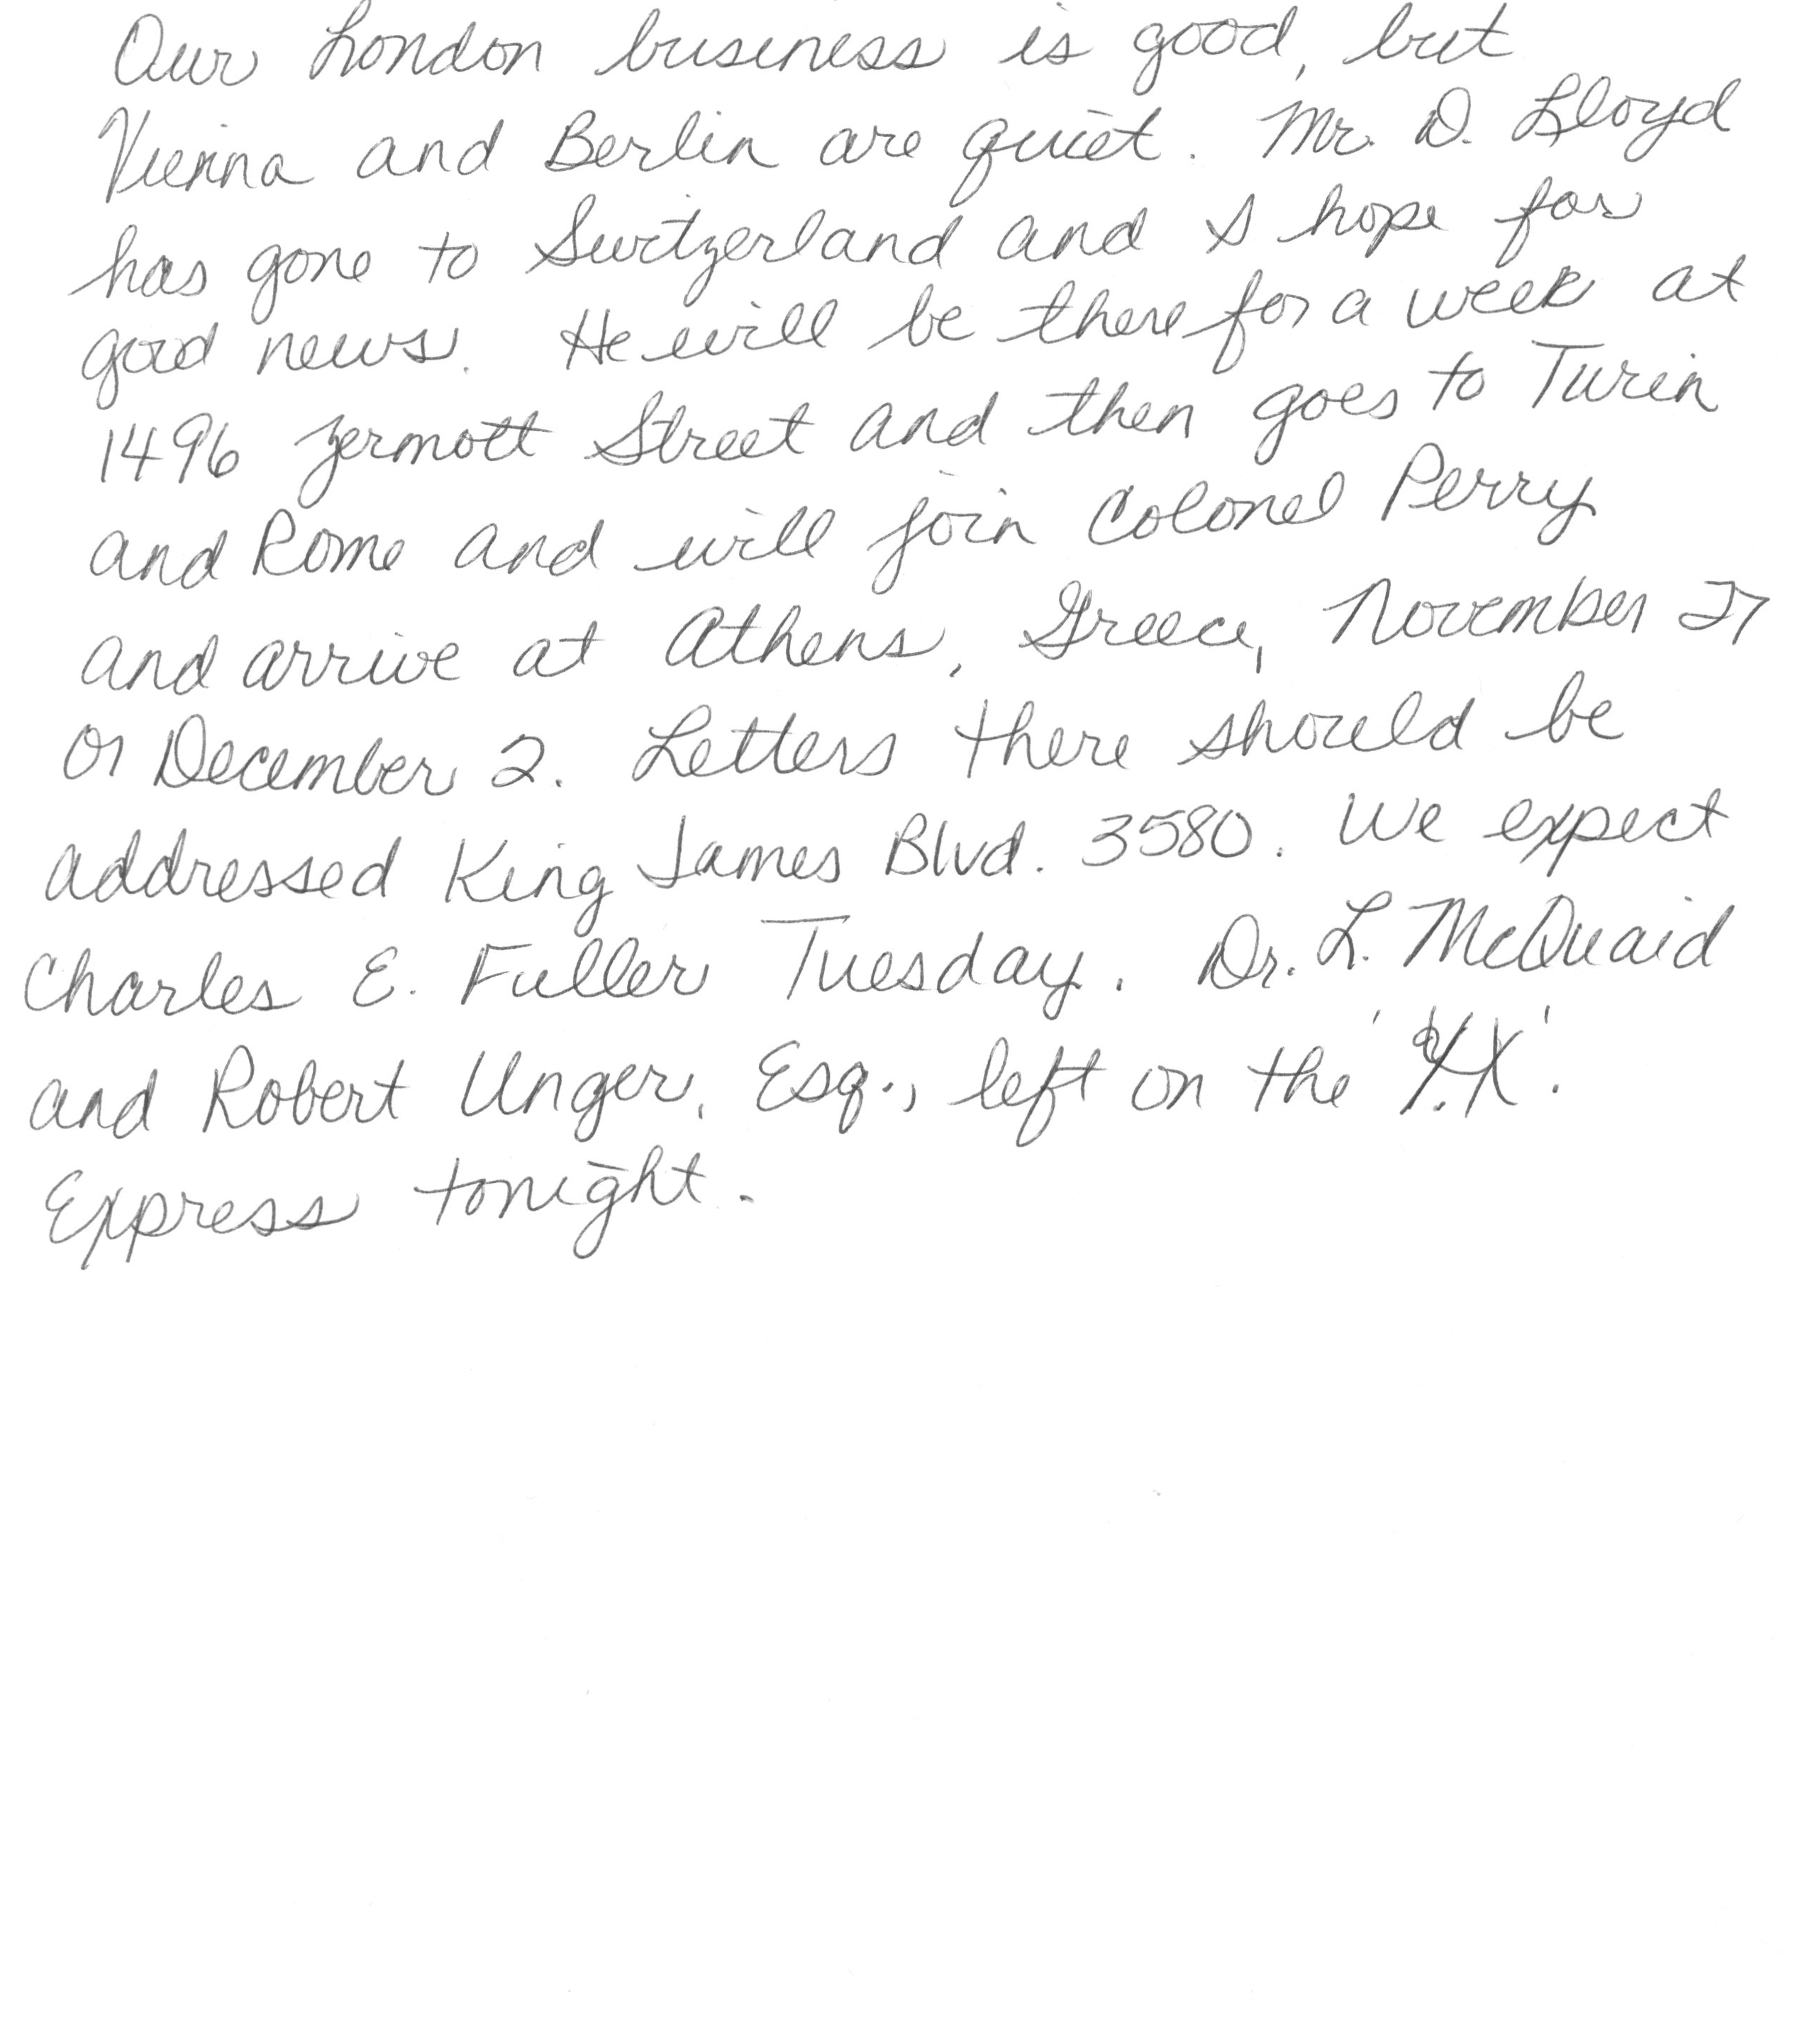 Our London business is good, but
Vienna and Berlin are quiet. Mr. D. Lloyd
has gone to Switzerland and I hope for
good news. He will be there for a week at
1496 Zermott Street and then goes to Turin
and Rome and will join Colonel Perry
and arrive at Athens, Greece, November 27
or December 2. Letters there should be
addressed King James Blvd. 3580. We expect
Charles E. Fuller Tuesday. Dr. L. McQuaid
and Robert Unger, Esq., left on the 'Y.X'.
Express tonight.